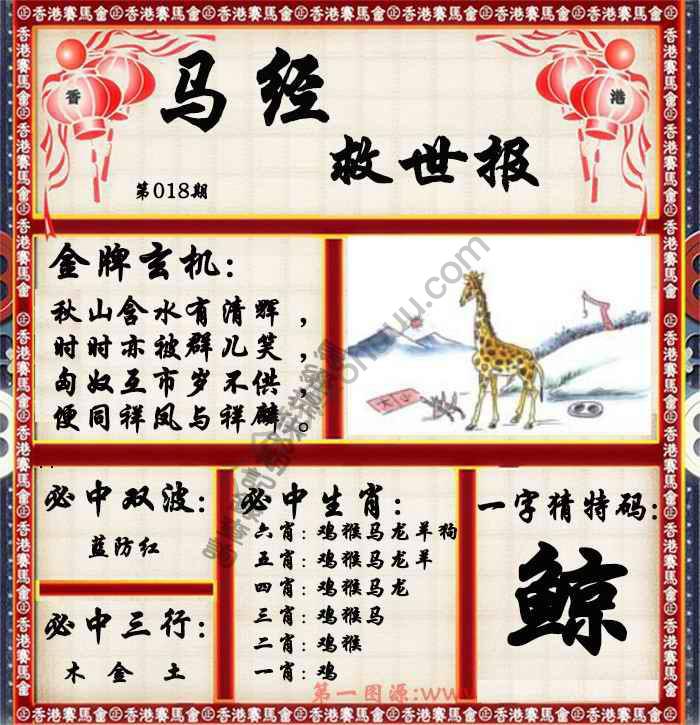 香港賽馬會
马经
救世报
香
港
第018期
金牌玄机：
秋山含水有清辉，
时时亦被群儿笑，
匈奴互市岁不供，
便同祥凤与祥麟。
大小
必中双波：
蓝防红
必中三行：
木 金 土
必中生肖：
六肖：鸡猴马龙羊狗
五肖：鸡猴马龙羊
四肖：鸡猴马龙
三肖：鸡猴马
二肖：鸡猴
一肖：鸡
一字猜特码：
鲸
第一图源:www